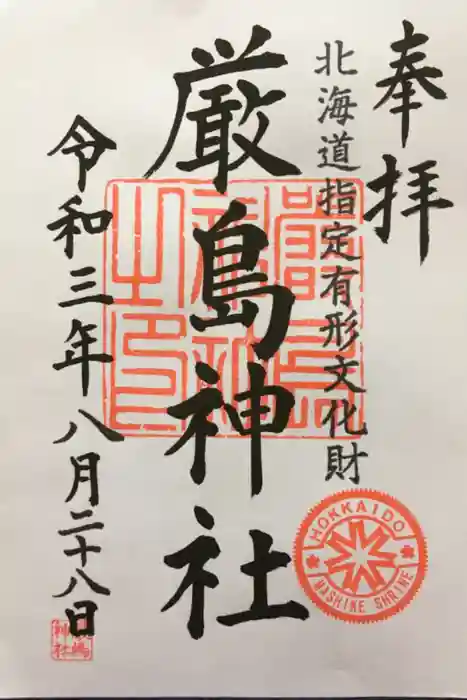 奉拝
北海道指定有形文化財
厳島神社
令和三年八月二十八日
嚴島神社之印
HOKKAIDO
MASHIKE SHRINE